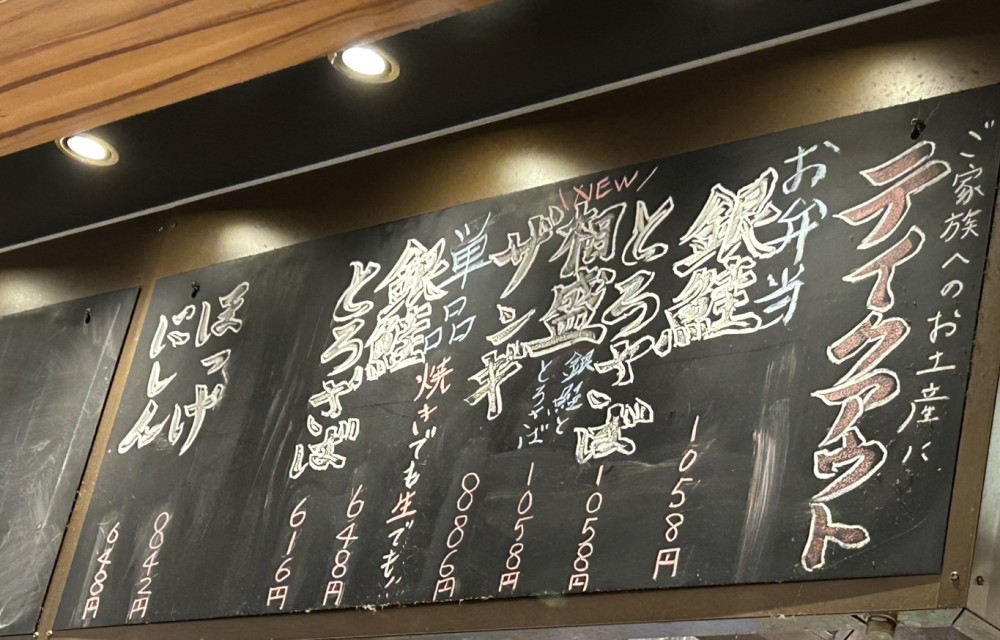 ご家族へのお土産に
テイクアウト
お弁当
銀鮭 1058円
とろさば 1058円
NEW
相盛 銀鮭ととろさば 1058円
ザンギ 886円
単品 焼きでも生でも!!
銀鮭 648円
とろさば 616円
ほっけ 842円
にしん 648円